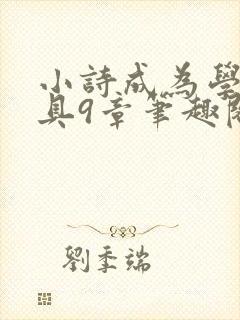 小詩成為學
具9章筆趣閣
劉季端